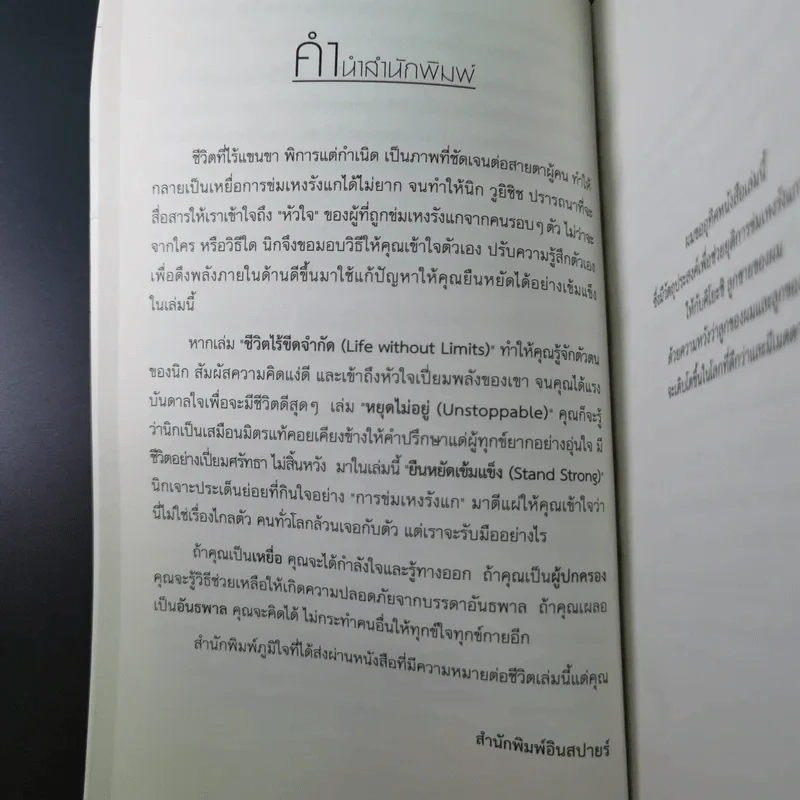 คำนำสำนักพิมพ์
ชีวิตที่ไร้แขนขา พิการแต่กำเนิด เป็นภาพที่ชัดเจนต่อสายตาผู้คน ทำให้
กลายเป็นเหยื่อการข่มเหงรังแกได้ไม่ยาก จนทำให้นิก วูยิชิช ปรารถนาที่จะ
สื่อสารให้เราเข้าใจถึง "หัวใจ" ของผู้ที่ถูกข่มเหงรังแกจากคนรอบๆ ตัว ไม่ว่าจะ
จากใคร หรือวิธีใด นิกจึงขอมอบวิธีให้คุณเข้าใจตัวเอง ปรับความรู้สึกตัวเอง
เพื่อดึงพลังภายในด้านดีขึ้นมาใช้แก้ปัญหาให้คุณยืนหยัดได้อย่างเข้มแข็ง
ในเล่มนี้
หากเล่ม "ชีวิตไร้ขีดจำกัด (Life without Limits)" ทำให้คุณรู้จักตัวตน
ของนิก สัมผัสความคิดแง่ดี และเข้าถึงหัวใจเปี่ยมพลังของเขา จนคุณได้แรง
บันดาลใจเพื่อจะมีชีวิตดีสุดๆ เล่ม "หยุดไม่อยู่ (Unstoppable)" คุณก็จะรู้
ว่านิกเป็นเสมือนมิตรแท้คอยเคียงข้างให้คำปรึกษาแด่ผู้ทุกข์ยากอย่างอุ่นใจ มี
ชีวิตอย่างเปี่ยมศรัทธา ไม่สิ้นหวัง มาในเล่มนี้ "ยืนหยัดเข้มแข็ง (Stand Strong)"
นิกเจาะประเด็นย่อยที่กินใจอย่าง "การข่มเหงรังแก" มาตีแผ่ให้คุณเข้าใจว่า
นี่ไม่ใช่เรื่องไกลตัว คนทั่วโลกล้วนเจอกับตัว แต่เราจะรับมืออย่างไร
ถ้าคุณเป็นเหยื่อ คุณจะได้กำลังใจและรู้ทางออก ถ้าคุณเป็นผู้ปกครอง
คุณจะรู้วิธีช่วยเหลือให้เกิดความปลอดภัยจากบรรดาอันธพาล ถ้าคุณเผลอ
เป็นอันธพาล คุณจะคิดได้ ไม่กระทำคนอื่นให้ทุกข์ใจทุกข์กายอีก
สำนักพิมพ์ภูมิใจที่ได้ส่งผ่านหนังสือที่มีความหมายต่อชีวิตเล่มนี้แด่คุณ
สำนักพิมพ์อินสปายร์
ผมขออุทิศหนังสือเล่มนี้
ซึ่งมีวัตถุประสงค์เพื่อช่วยยุติการข่มเหงรังแก
ให้กับคิโยชิ ลูกชายของผม
ด้วยความหวังว่าลูกของผมและลูกของ
จะเติบโตขึ้นในโลกที่ดีกว่าและมีเมตตา